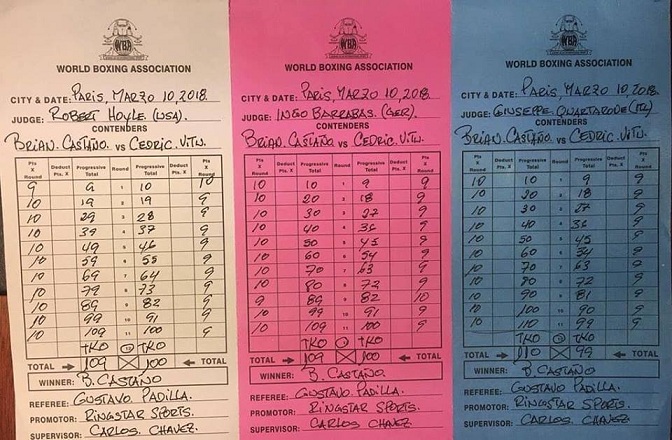 WBA
WORLD BOXING ASSOCIATION
CITY & DATE: PARIS, MARZO 10, 2018.
JUDGE: ROBERT HOYLE (USA).
CONTENDERS
BRIAN. CASTAÑO. VS CEDRIC. VITU.
Pts X Round Deduct Pts. X Progressive Total Round Progressive Total Deduct Pts. X Pts X Round
9 9 1 10 10
10 19 2 19 9
10 29 3 28 9
10 39 4 37 9
10 49 5 46 9
10 59 6 55 9
10 69 7 64 9
10 79 8 73 9
10 89 9 82 9
10 99 10 91 9
10 109 11 100 9
TKO 12 TKO
TOTAL 109 100 TOTAL
WINNER: B. CASTAÑO
REFEREE: GUSTAVO PADILLA.
PROMOTOR: RINGSTAR SPORTS.
SUPERVISOR: CARLOS. CHAVEZ.
WBA
WORLD BOXING ASSOCIATION
CITY & DATE: PARIS, MARZO 10, 2018.
JUDGE: INGO BARRABAS. (GER).
CONTENDERS
BRIAN. CASTAÑO VS CEDRIC. VITU.
Pts X Round Deduct Pts. X Progressive Total Round Progressive Total Deduct Pts. X Pts X Round
10 10 1 9 9
10 20 2 18 9
10 30 3 27 9
10 40 4 36 9
10 50 5 45 9
10 60 6 54 9
10 70 7 63 9
10 80 8 72 9
9 89 9 82 10
10 99 10 91 9
10 109 11 100 9
TKO 12 TKO
TOTAL 109 100 TOTAL
WINNER: B. CASTAÑO
REFEREE: GUSTAVO PADILLA.
PROMOTOR: RINGSTAR SPORTS.
SUPERVISOR: CARLOS CHAVEZ
WBA
WORLD BOXING ASSOCIATION
CITY & DATE: PARIS, MARZO 10, 2018.
JUDGE: GIUSEPPE QUARTARONE (IT)
CONTENDERS
BRIAN. CASTAÑO VS CEDRIC. VITU.
Pts X Round Deduct Pts. X Progressive Total Round Progressive Total Deduct Pts. X Pts X Round
10 10 1 9 9
10 20 2 18 9
10 30 3 27 9
10 40 4 36 9
10 50 5 45 9
10 60 6 54 9
10 70 7 63 9
10 80 8 72 9
10 90 9 81 9
10 100 10 90 9
10 110 11 99 9
TKO 12 TKO
TOTAL 110 99 TOTAL
WINNER: B. CASTAÑO
REFEREE: GUSTAVO PADILLA.
PROMOTOR: RINGSTAR SPORTS.
SUPERVISOR: CARLOS CHAVEZ.